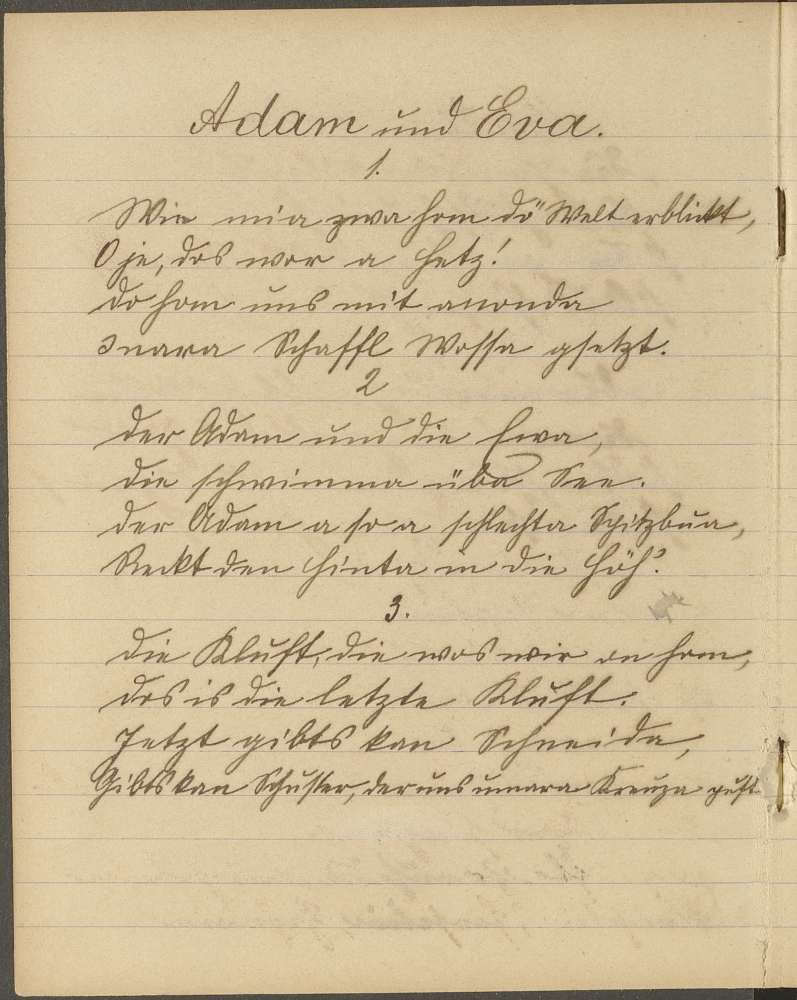 Adam und Eva.
1.
Wia mia zwa hom dö Welt erblickt,
O je, dos wor a Hetz!
Do hom uns mit ananda
Inara Schaffl Wossa gsetzt.
2
Der Adam und die Eva,
Die schwimma üba See.
Der Adam a so a schlechta Spitzbua,
Reckt den Hinta in die Höh'.
3.
Die Kluft, die wos wir on hom,
Dos is die letzte Kluft.
Jetzt gibts kan Schneida,
Gibts kan Schuster, der uns umara Kreuza